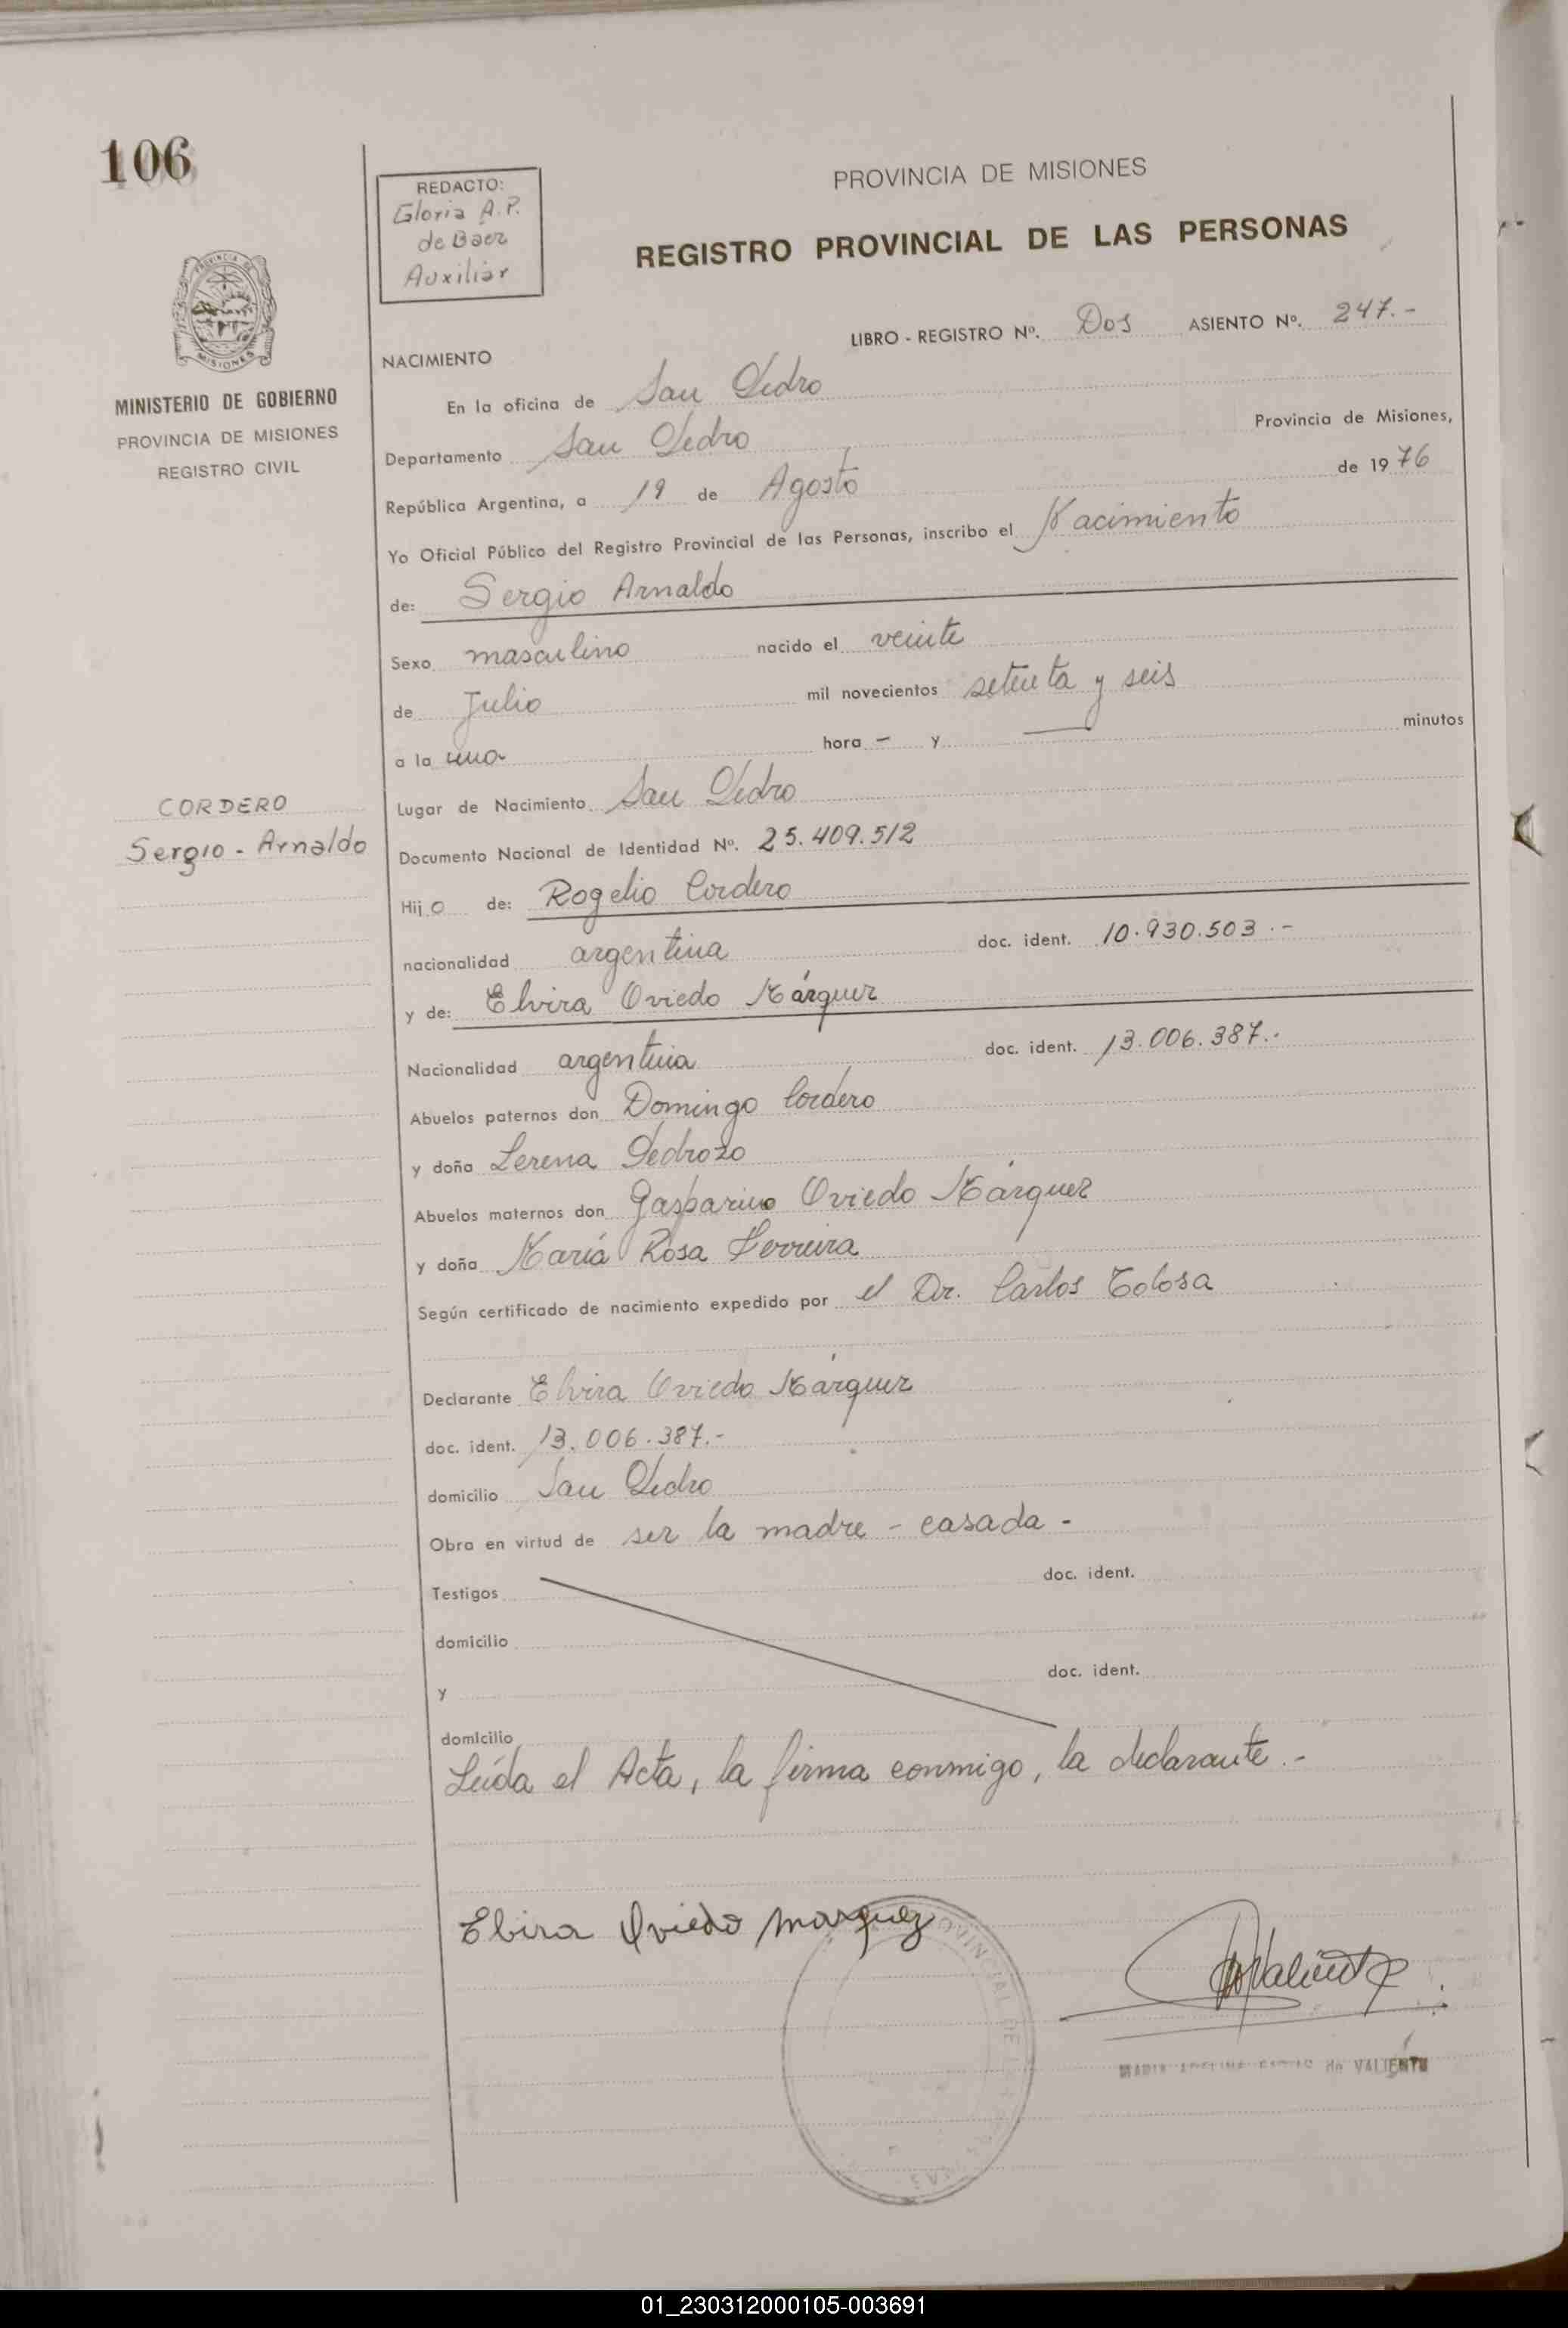 106
REDACTO:
Gloria A.P.
de Báez
Auxiliar
PROVINCIA DE MISIONES
REGISTRO PROVINCIAL DE LAS PERSONAS
PROVINCIA DE
MISIONES
MINISTERIO DE GOBIERNO
PROVINCIA DE MISIONES
REGISTRO CIVIL
LIBRO - REGISTRO Nº. Dos ASIENTO Nº. 247.-
NACIMIENTO
En la oficina de San Pedro
Departamento San Pedro Provincia de Misiones,
República Argentina, a 19 de Agosto de 1976
Yo Oficial Público del Registro Provincial de las Personas, inscribo el Nacimiento
de: Sergio Arnaldo
Sexo masculino nacido el veinte
de Julio mil novecientos setenta y seis
a la una hora - y — minutos
CORDERO
Sergio - Arnaldo
Lugar de Nacimiento San Pedro
Documento Nacional de Identidad Nº. 25.409.512
Hijo de: Rogelio Cordero
nacionalidad argentina doc. ident. 10.930.503.-
y de: Elvira Oviedo Márquez
Nacionalidad argentina doc. ident. 13.006.387.-
Abuelos paternos don Domingo Cordero
y doña Lerena Pedrozo
Abuelos maternos don Gasparino Oviedo Márquez
y doña María Rosa Ferreira
Según certificado de nacimiento expedido por el Dr. Carlos Tolosa
Declarante Elvira Oviedo Márquez
doc. ident. 13.006.387.-
domicilio San Pedro
Obra en virtud de ser la madre - casada -
Testigos doc. ident.
domicilio
y doc. ident.
domicilio
Leída el Acta, la firma conmigo, la declarante.-
Elvira Oviedo Marquez
Valiente
MARIA de VALIENTE
PROVINCIAL DE
01_230312000105-003691